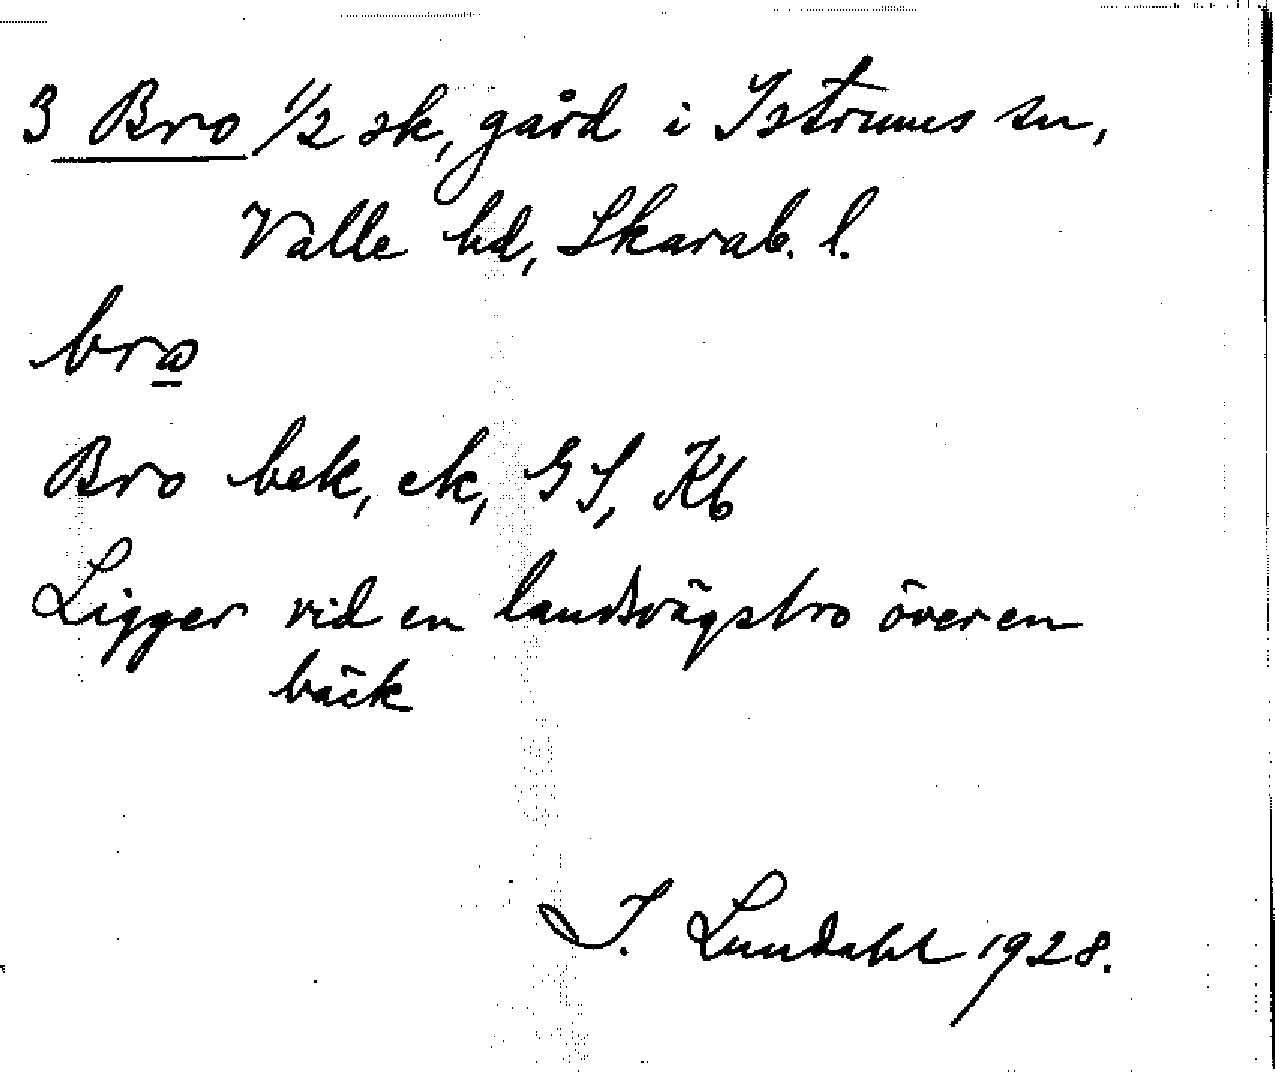 3 Bro 1/2 sk, gård i Istrums sn,
Valle hd, Skarab. l.
bro
Bro bek, ek, GS, Kb
Ligger vid en landsvägsbro över en
bäck
I. Lundahl 1928.